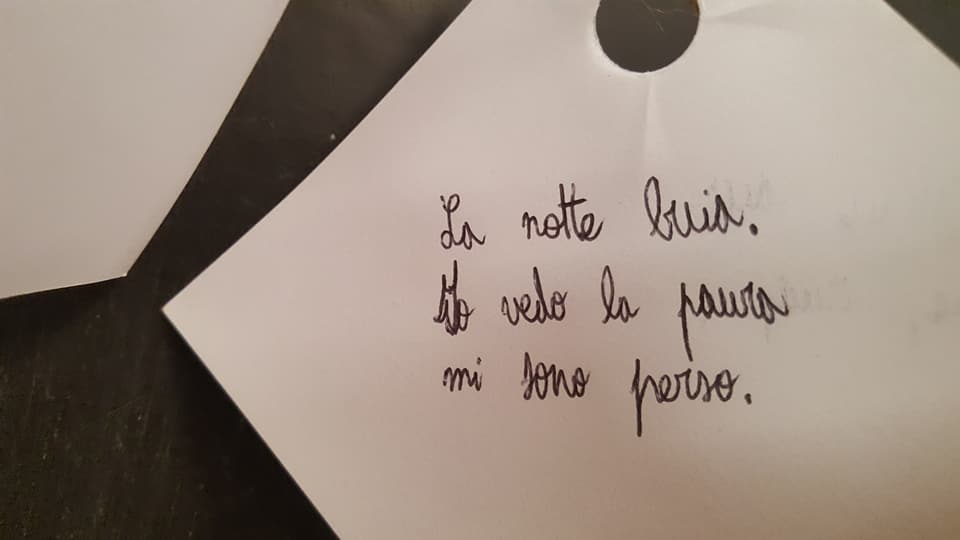 La notte buia.
Io vedo la paura
mi sono perso.